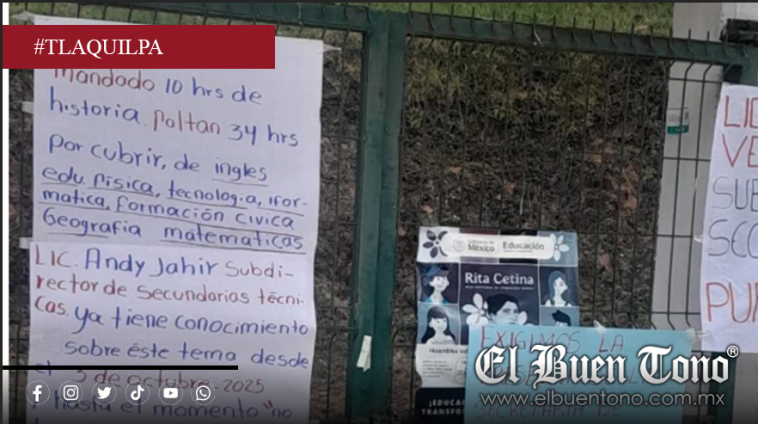 #TLAQUILPA
mandado 10 hrs de
historia. Paltan 34 hrs
por cubrir, de ingles
edu. Pisica, tecnologia, ifor-
matica, formación civica
Geografia matematicas
LIC. Andy Jahir Subdi-
rector de secundarias técni-
cas. ya tiene conocimiento
sobre éste tema desde
el 3 de octubre. 2025
y hasta el momento "no
Gobierno de
México
Educación
Rita Cetina
EXIGIMOS LA
SECRETARIA DE
LIC
VE
SUB
SEC
PUN
El Buen Tono®
www.elbuentono.com.mx